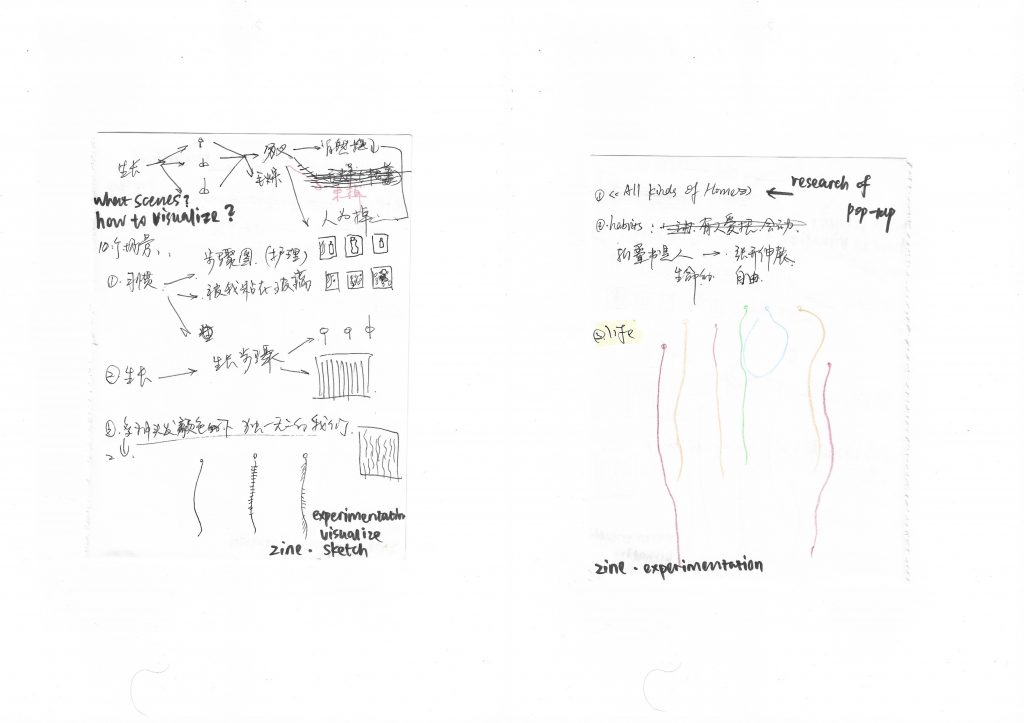 生长
毛燥
自然掉
人为掉
what scenes?
how to visualize?
10个场景
①.习惯
步骤图.(护理)
被我贴在玻璃
②生长
生长步骤
③.各种头发颜色的下 独一无二的我们
experimentation
visualize
zine · sketch
① <<All kinds of Homes>>
research of
pop-up
②.habits:
折叠书是人 → 张开伸展.
生命的 自由.
③.life
zine · experimentation